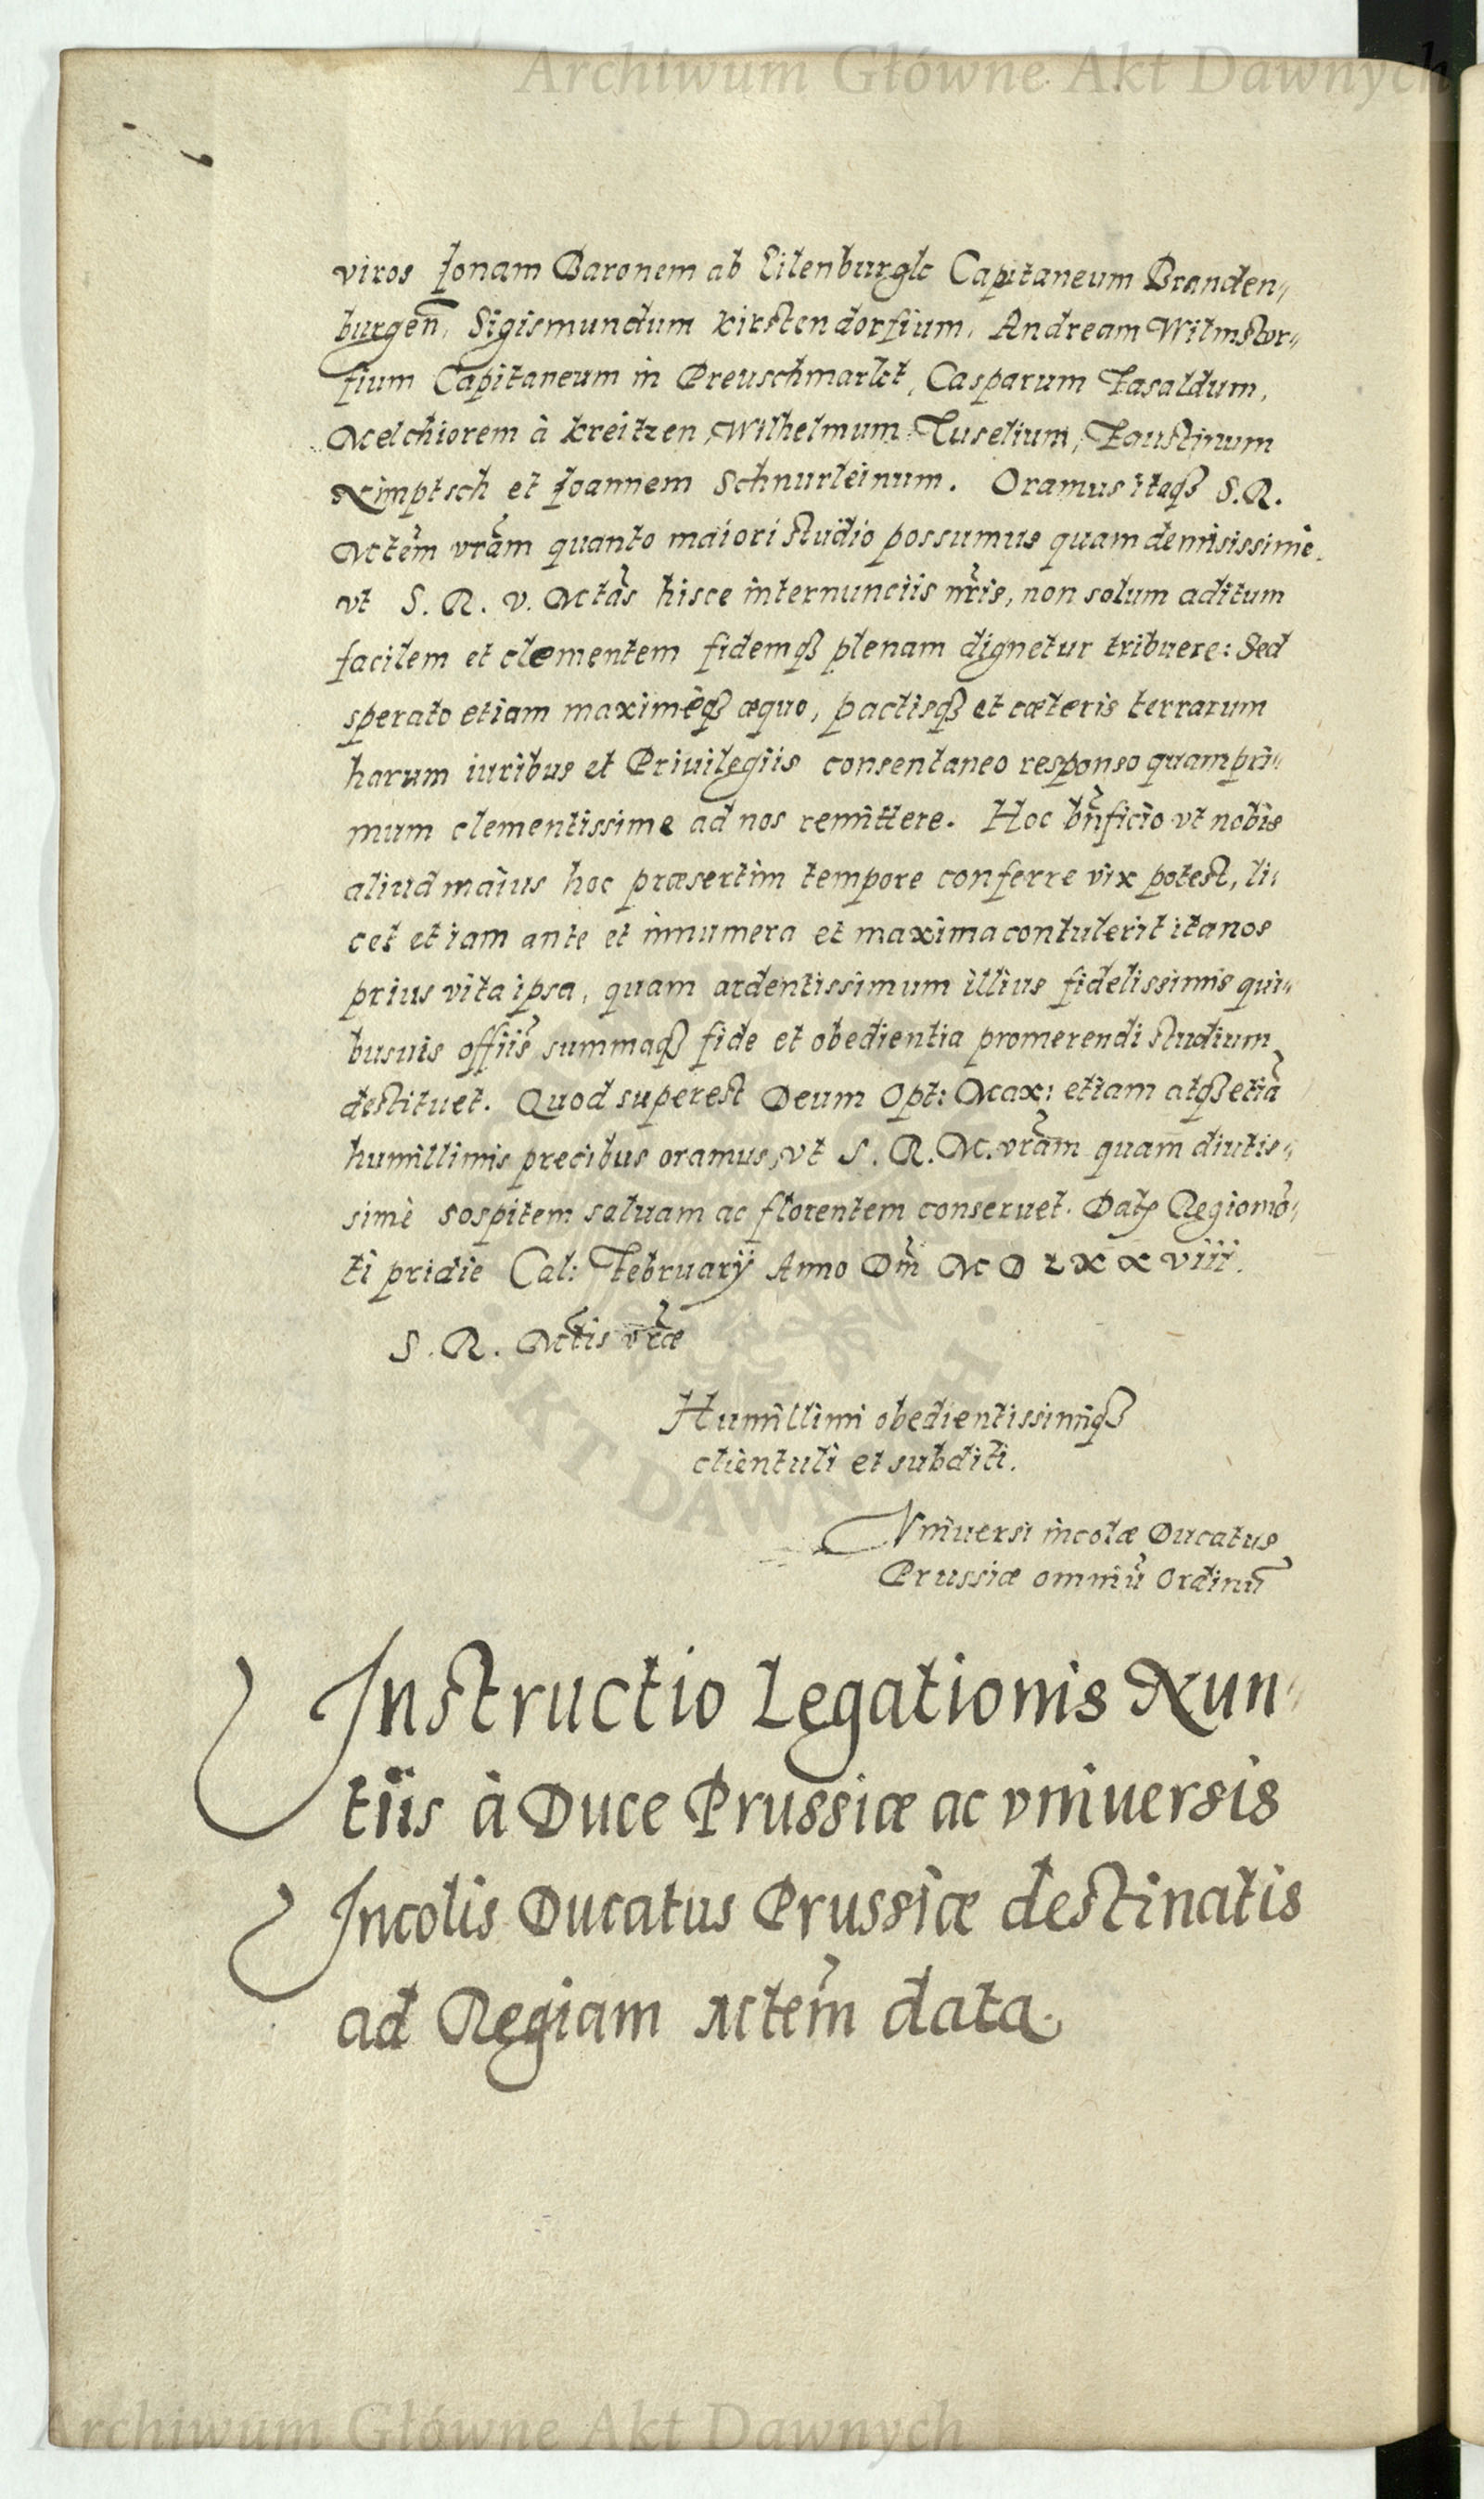 Archiwum Główne Akt Dawnych
viros Jonam Baronem ab Eilenburgk Capitaneum Branden„
burgen̄, Sigismundum Kirstendorfium, Andream Wilmstor„
fium Capitaneum in Preuschmarkt, Casparum Fasaldum,
Melchiorem à Kreitzen, Wilhelmum Tuselium, Faustinum
Nimptsch et Joannem Schnurleinum. Oramus itaqꝫ S.R.
Mtem̃ vrãm quanto maiori studio possumus quam demisissime.
vt S. R. V. Mtas̃ hisce internunciis nr̃is, non solum aditum
facilem et clementem fidemqꝫ plenam dignetur tribuere: Sed
sperato etiam maximèqꝫ æquo, pactisqꝫ et cæteris terrarum
harum iuribus et Priuilegiis consentaneo responso quampri„
mum clementissime ad nos remittere. Hoc bñficio vt nobis
aliud maius hoc præsertim tempore conferre vix potest, li„
cet etiam ante et innumera et maxima contulerit ita nos
prius vita ipsa, quam ardentissimum illius fidelissimis qui„
busuis offiis̃ summaqꝫ fide et obedientia promerendi studium
destituet. Quod superest Deum Opt: Max: etiam atqꝫ etiã
humillimis precibus oramus, vt S. R. M. vrãm quam diutis„
simè sospitem saluam ac florentem conseruet. Datꝭ Regiomõ„
ti pridie Cal: February Anno Dñi M D L X X VIII.
S. R. Mtis̃ vrã̃e
Humillimi obedientissimiqꝫ
clientuli et subditi.
Vniuersi incolæ Ducatus
Prussiæ omniũ Ordinũ
Instructio Legationis Nun„
tiis à Duce Prussiæ ac vniuersis
Incolis Ducatus Prussiæ destinatis
ad Regiam Mtem̃ data.
AKT DAWNYCH
Archiwum Główne Akt Dawnych